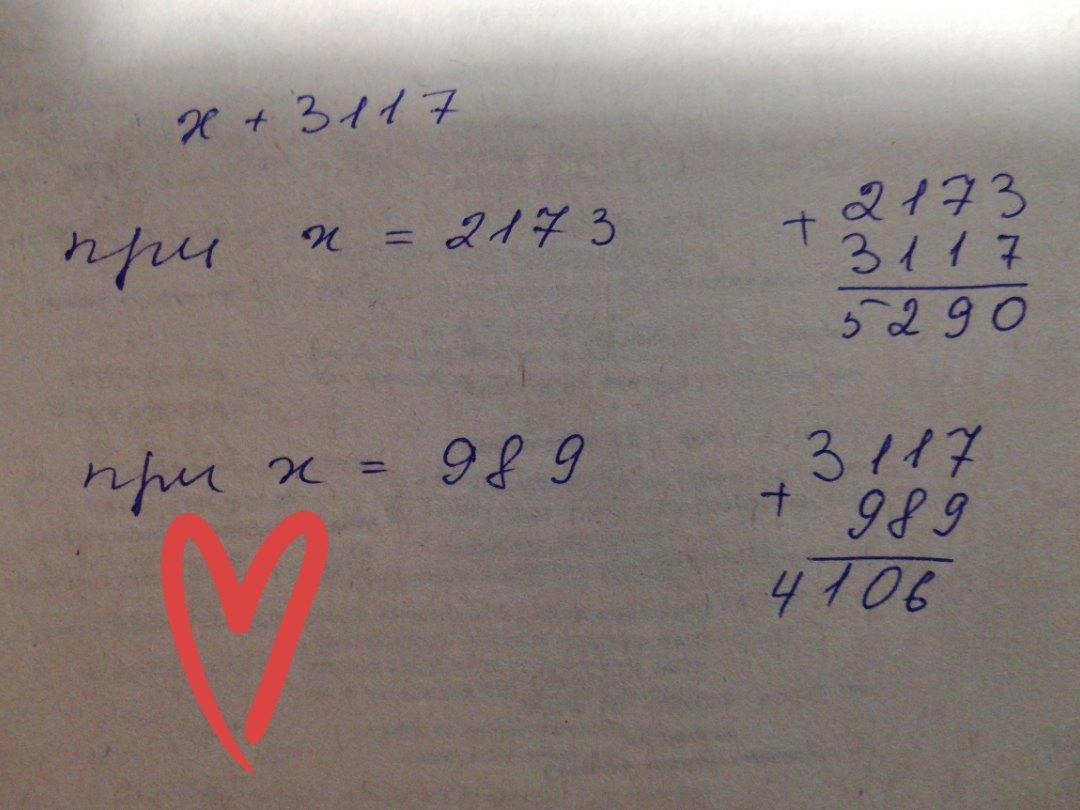 x + 3117
при x = 2173
+ 2173
3117
5290
при x = 989
+ 3117
989
4106